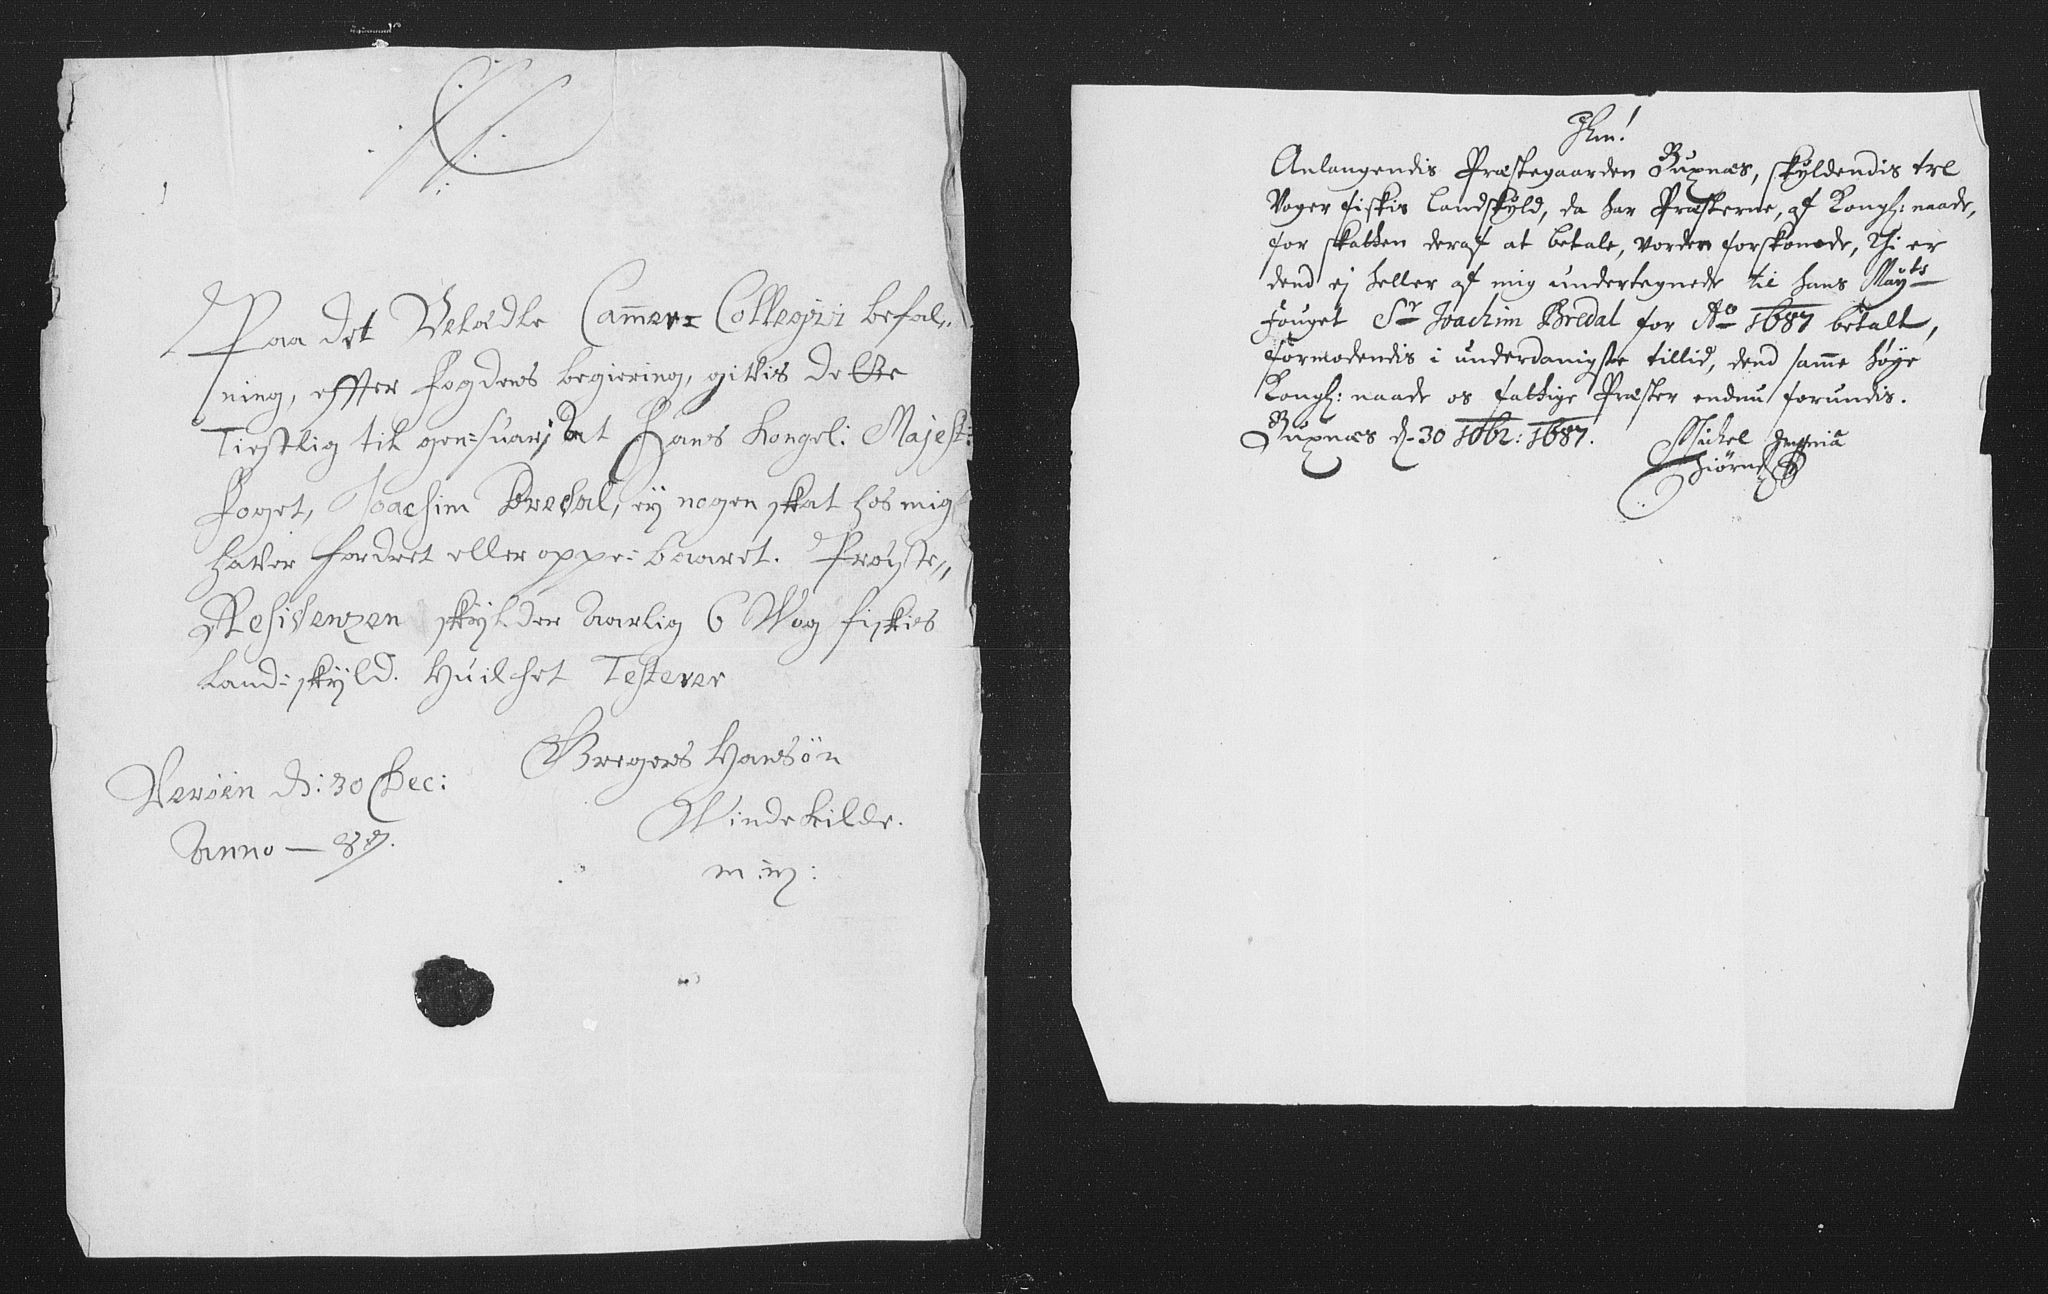 Paa det Velædle Cam̄er-Collegivi befal,,
ning, effter fogdens begiering, givis dette
Tiestlig til gen=suar, at Hans Kongel: Majest:
foget, Joachim Bredal, ey nogen skat hos mig
haver fordret eller oppe=baaret. Prøuste,,
Residenzen skylder Aarlig 6 Wog fiskies
Land=skyld. Huilchet Testerer
Gregers Hansøn
Windekilde.
m: m:
Verøen d: 30 Dec:
Anno — 87.
Anlangendis Præstegaarden Buxnæs, skyldendis tre
Voger fiskis Landskyld, da har Præsterne, af Kongl: naade,
for skatten deraf at betale, vorden forskonede, Thi er
dend ej heller af mig undertegnede til hans Mayts
fouget Sr Joachim Bredal for Ao 1687 betalt,
formodendis i underdanigste tillid, dend samme høye
Kongl: naade os fattige Præster endnu forundis.
Buxnæs d. 30 10br: 1687. Michel